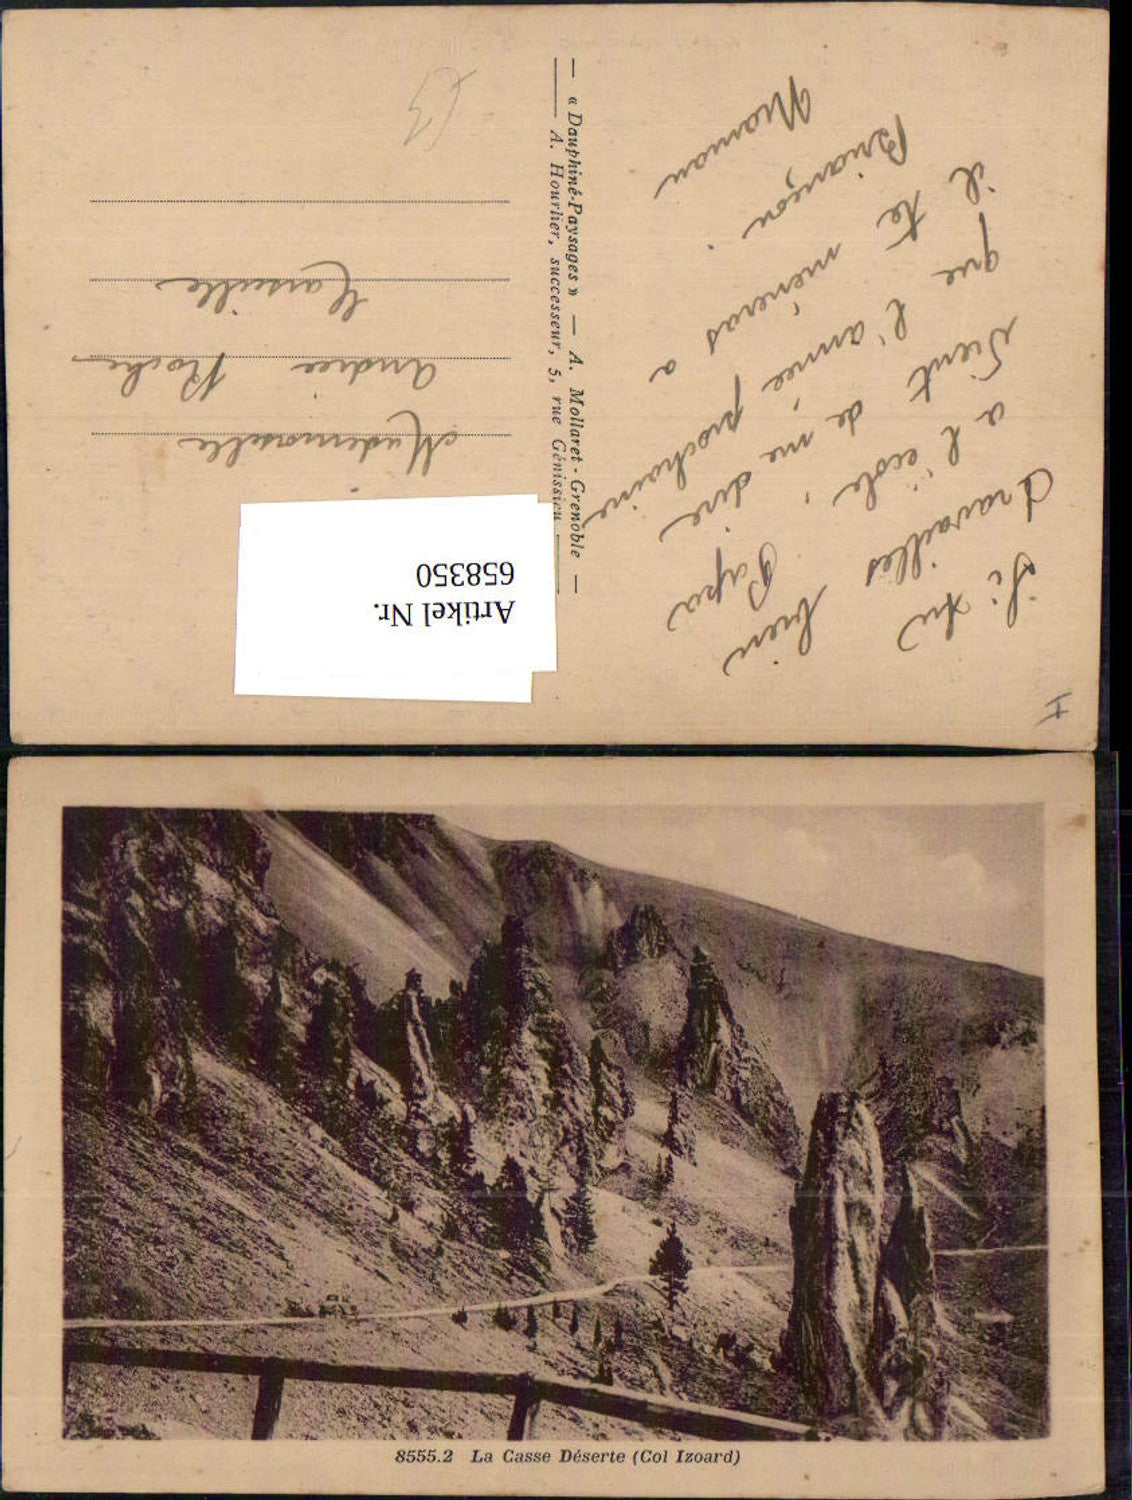 Si tu
travailles bien
a l'école, Papa
vient de me dire
que l'année prochaine
il te méneras a
Briançon.
Maman
— « Dauphiné-Paysages » — A. Mollaret - Grenoble —
A. Hourlier, successeur, 5, rue Génissieu
Mademoiselle
Andrée Roche
Marseille
Artikel Nr.
658350
I
8555.2 La Casse Déserte (Col Izoard)